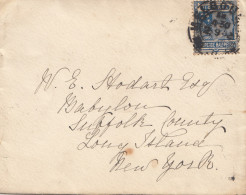 W. E. Hodart Esq
Babylon
Suffolk County
Long Island
New York.